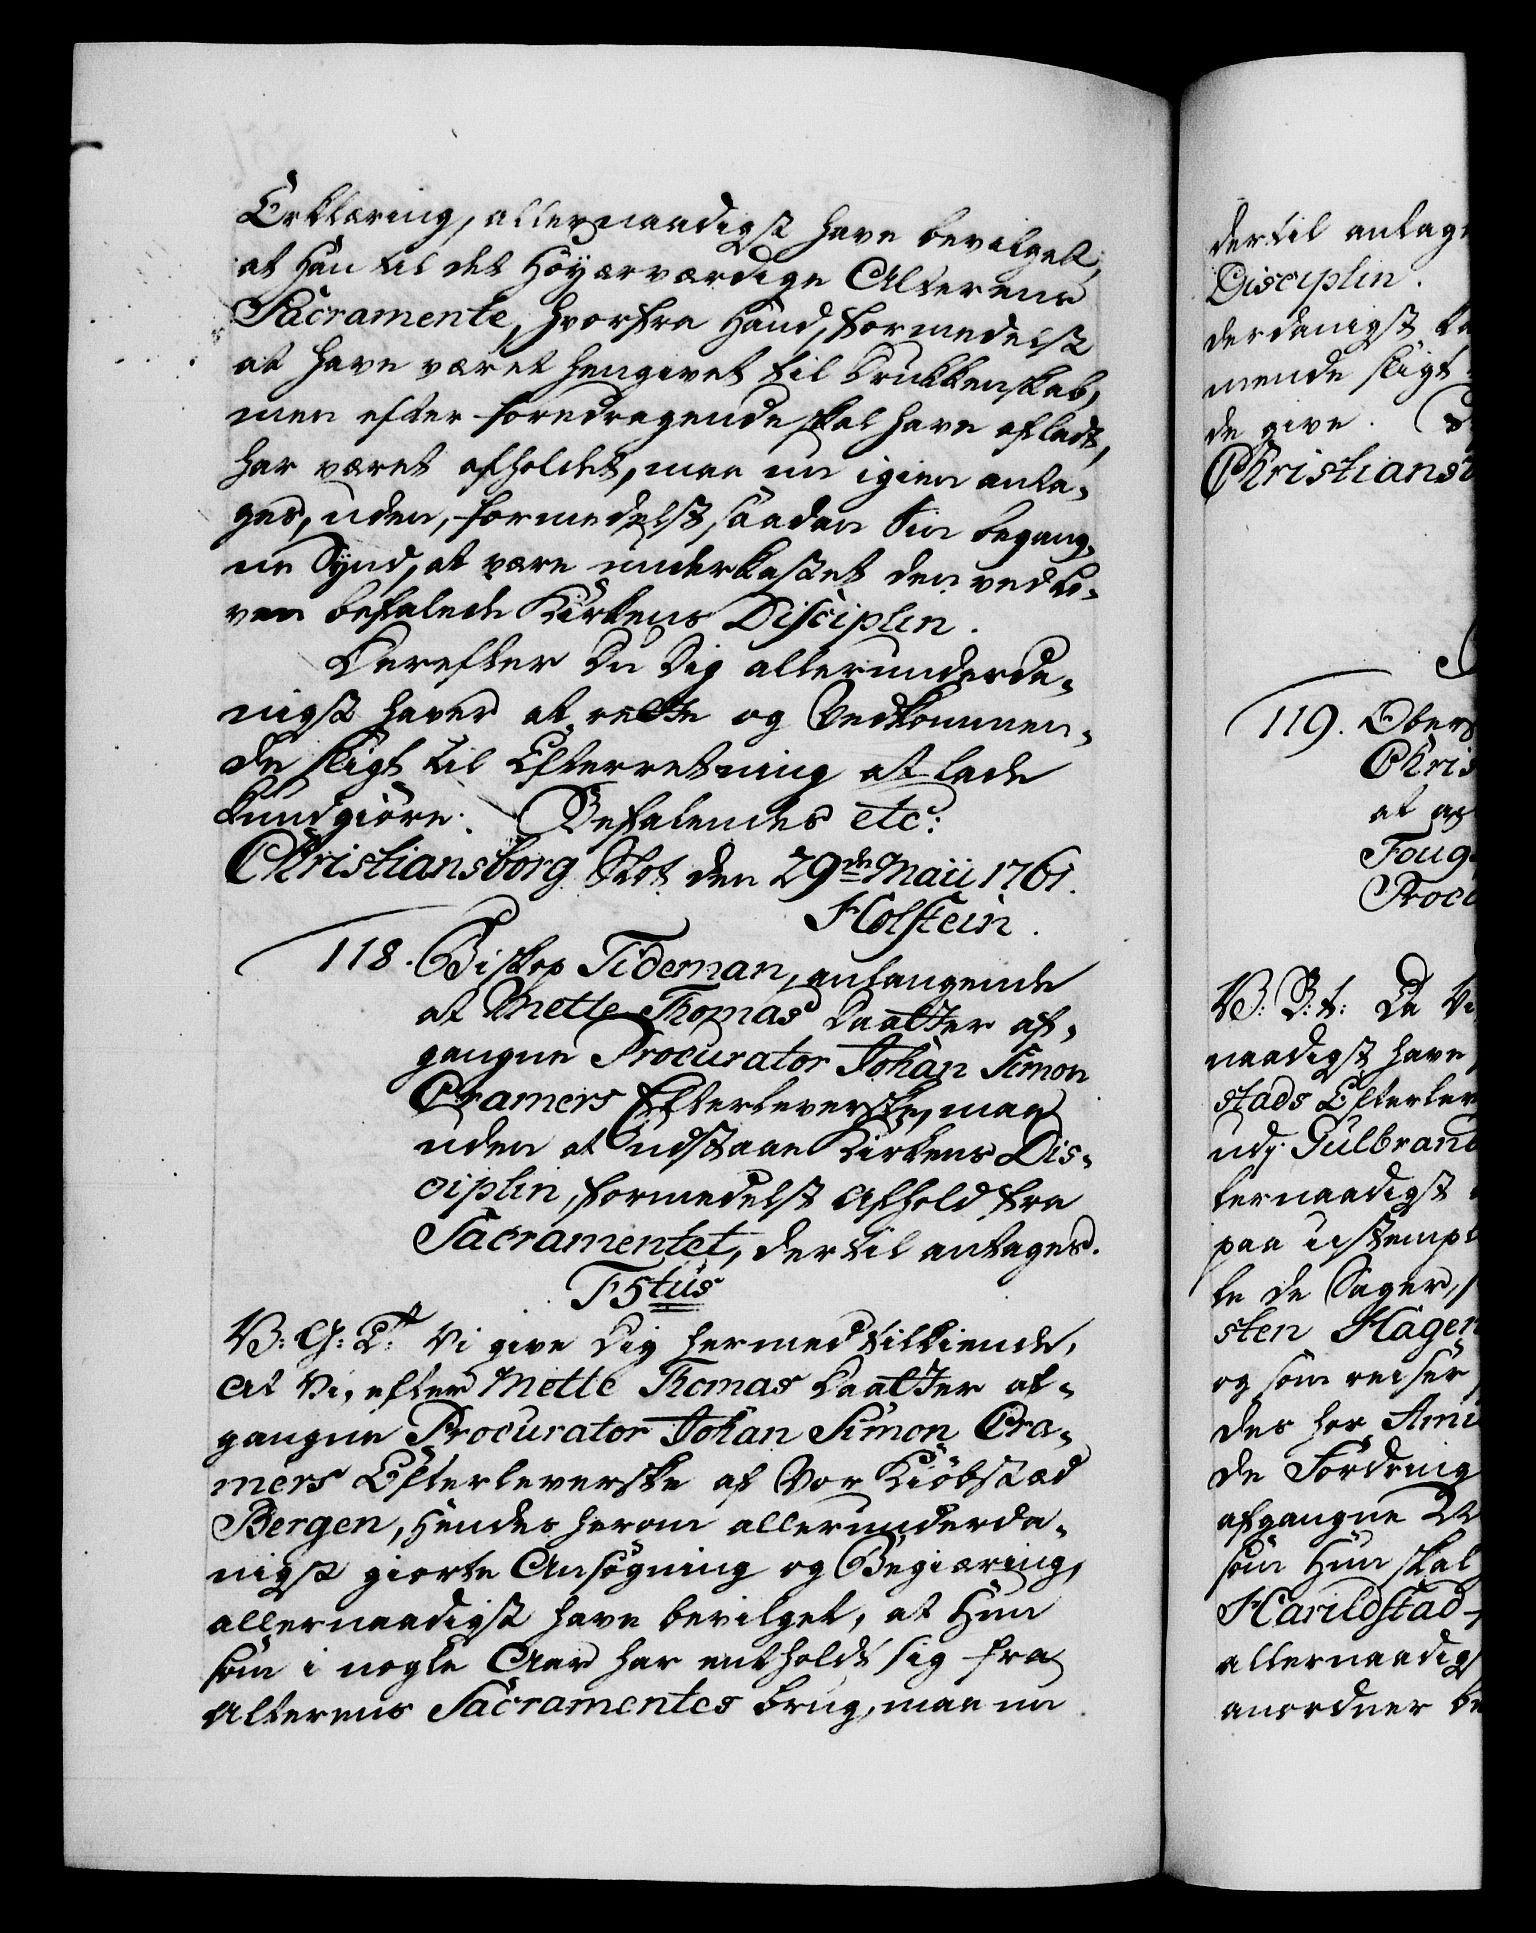 Erklæring, allernaadigst have bevilget,
at Han til det Høyærværdige Alterens
Sacramente, hvorfra Hand, formedelst
at have været hengivet til Drukkenskab,
men efter foredragende skal have afladt,
har været afholdet, maa nu igien anta-
ges, uden, formedelst saadan Sin begang-
ne Synd, at være underkastet den ved Lo-
ven befalede Kirkens Disciplin.
Derefter Du Dig allerunderda-
nigst haver at rette og Vedkommen-
de sligt til Efterretning at lade
kundgiøre. Befalendes etc:
Christiansborg Slot den 29de Maii 1761.
Holstein.
118. Biskop Tideman, anlangende
at Mette Thomas Daatter af-
gangne Procurator Johan Simon
Cramers Efterleverske, maa
uden at udstaae Kirkens Dis-
ciplin, formedelst Afhold fra
Sacramentet, dertil antages.
F5tus
V: G: T: Vi give Dig hermed tilkiende,
at Vi, efter Mette Thomas Daatter af-
gangne Procurator Johan Simon Cra-
mers Efterleverske af Vor Kiøbstæd
Bergen, Hendes herom allerunderda-
nigst giorte Ansøgning og Begiæring,
allernaadigst have bevilget, at Hun
som i nogle Aar har entholdt sig fra
Alterens Sacramentes brug, maa nu
dertil antage
Disciplin.
derdanigst
mende sligt
de give.
Christians
119. Obers
Chris
at
Foug
Procu
V: G: T: Da Vi
naadigst have
stads Efterlev
udj Gulbrand
lernaadigst
paa ustempl
le de Sager,
sten Hagen
og som reiser
des her Ami
de Fordring
afgangne
som Hun skal
Harildstad
allernaadigs
anordner be